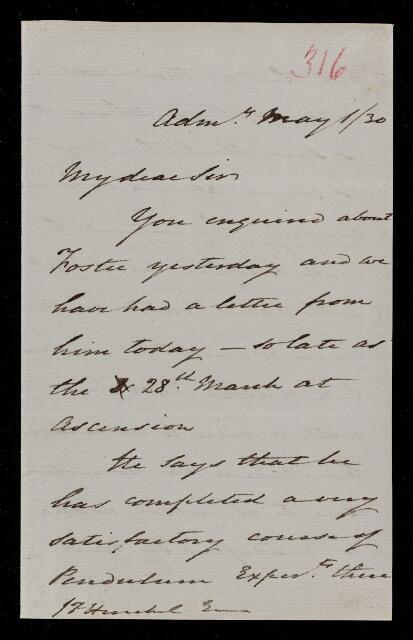 316
Adm.ty May 1/30
My dear Sir
You enquired about
Foster yesterday and we
have had a letter from
him today – so late as
the 28.th March at
Ascension
He says that he
has completed a very
satisfactory course of
Pendulum Exper.ts there
JF Herschel